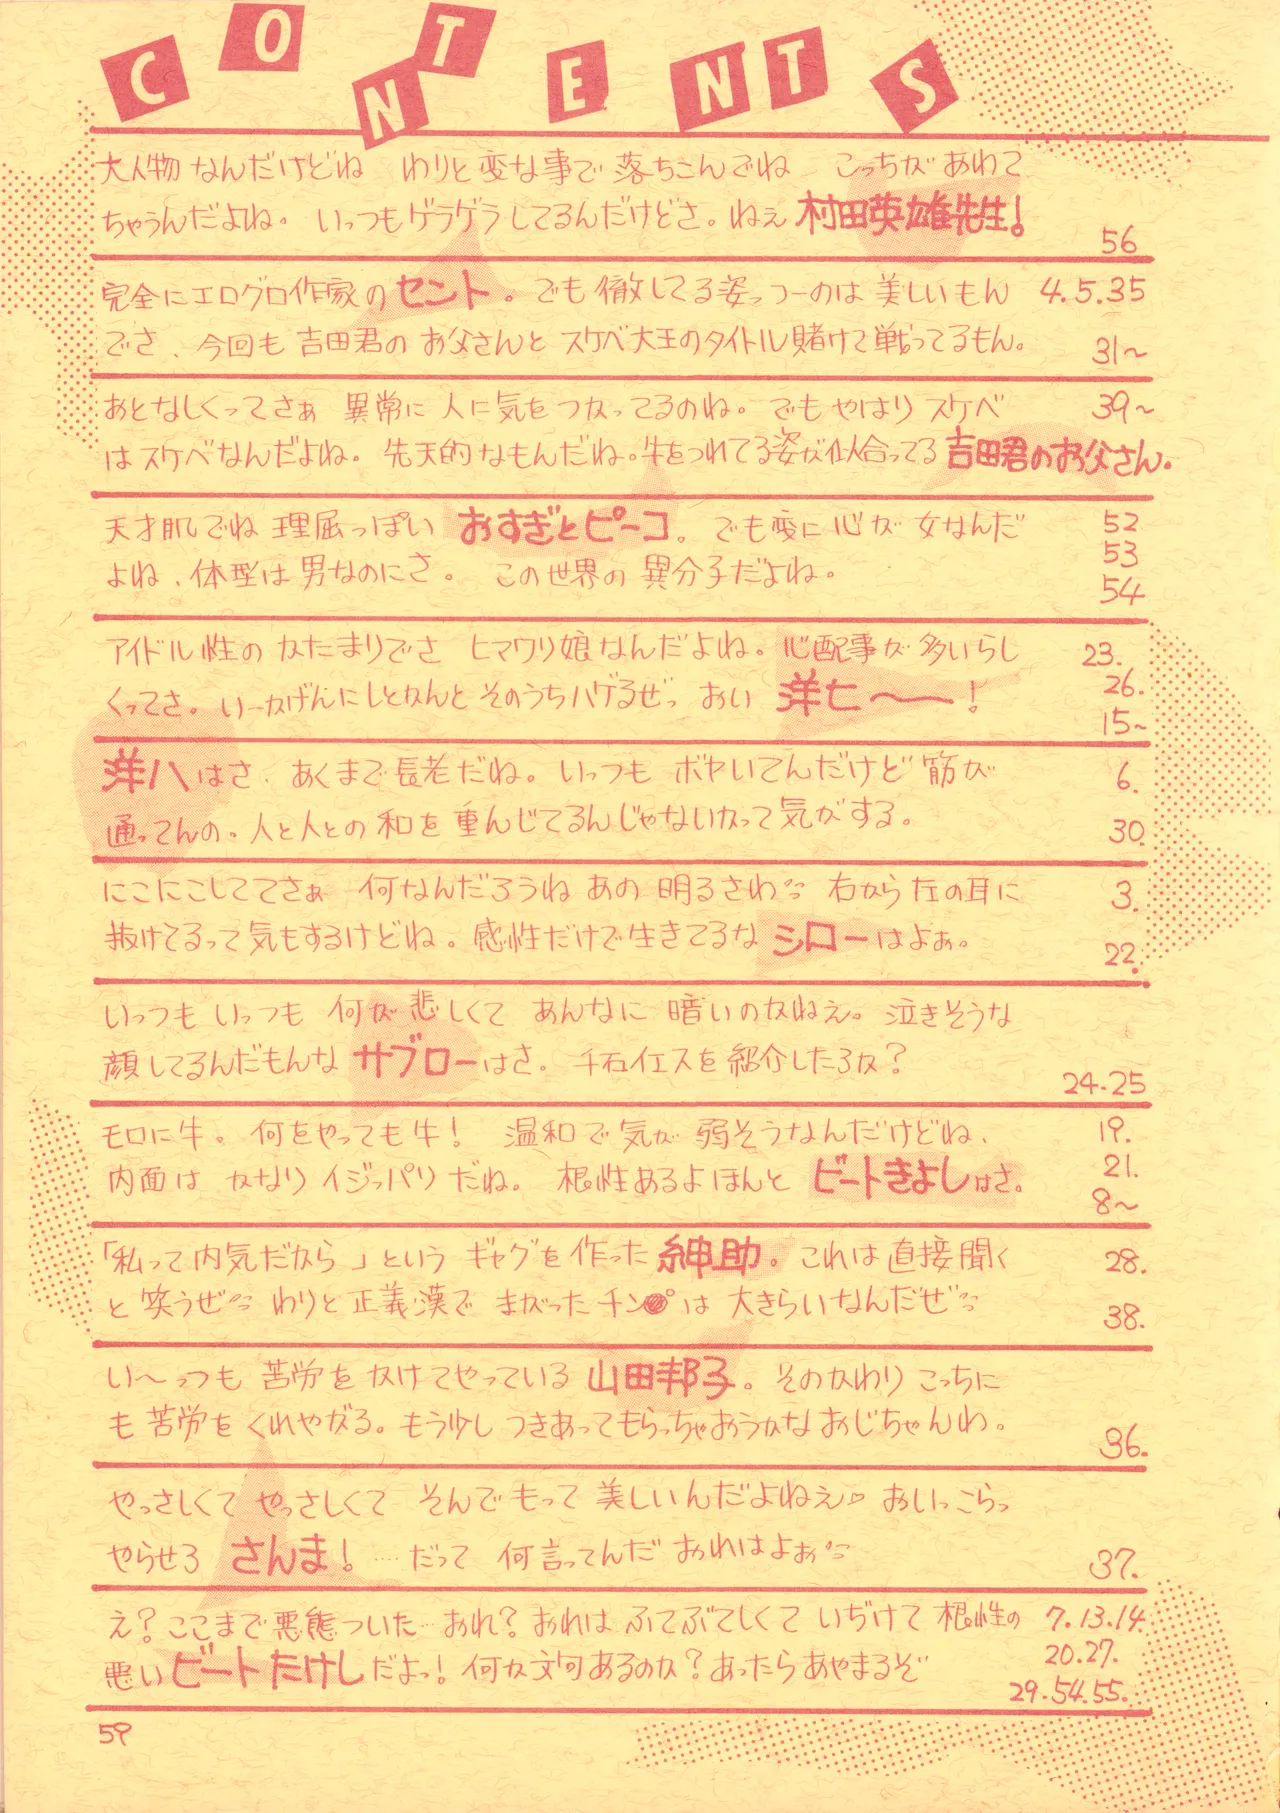 CONTENTS
大人物なんだけどね わりと変な事で落ちこんでね こっちが あわて
ちゃうんだよね。いっつもゲラゲラしてるんだけどさ。ねぇ 村田英雄先生!
56
完全にエログロ作家のセント。でも徹してる姿っつーのは美しいもん 4.5.35
でさ、今回も吉田君のお父さんとスケベ大王のタイトル賭けて戦ってるもん。 31〜
おとなしくってさぁ 異常に人に気をつかってるのね。でもやはりスケベ 39〜
はスケベなんだよね。先天的なもんだね。牛をつれてる姿が似合ってる吉田君のお父さん。
天才肌でね 理屈っぽい おすぎとピーコ。でも変に心が女なんだ 52
53
よね、体型は男なのにさ。この世界の異分子だよね。 54
アイドル性のかたまりでさ ヒマワリ娘なんだよね。心配事が多いらし 23.
くってさ。いーかげんにしとかんとそのうちハゲるぜっ おい 洋七〜〜! 26.
15~
洋八はさ、あくまで長老だね。いっつもボヤいてんだけど筋が 6.
通ってんの。人と人との和を重んじてるんじゃないかって気がする。 30.
にこにこしててさぁ 何なんだろうね あの明るさわ 右から左の耳に 3.
抜けてるって気もするけどね。感性だけで生きてるな シローはよぉ。 22.
いっつもいっつも 何が悲しくて あんなに暗いのかねぇ。泣きそうな
顔してるんだもんな サブローはさ。千石イエスを紹介したろか?
24・25
モロに牛。何をやっても牛! 温和で気が弱そうなんだけどね、 19.
内面は かなりイジッパリだね。根性あるよほんと ビートきよしはさ。 21.
8〜
「私って内気だから」という ギャグを作った紳助。これは直接聞く 28.
と笑うぜ わりと正義漢で まがったチン●は 大きらいなんだぜ 38.
い〜っつも 苦労をかけてやっている 山田邦子。そのかわりこっちに
も苦労をくれやがる。もう少しつきあってもらっちゃおうかなおじちゃんわ。 36.
やっさしくて やっさしくて そんでもって美しいんだよねぇ♡ おいっこらっ
やらせろ さんま! …だって 何言ってんだ おれはよぉ 37.
え?ここまで悪態ついた…おれ?おれはふてぶてしくて いぢけて 根性の 7.13.14.
悪いビートたけしだよっ! 何か文句あるのか?あったらあやまるぞ 20.27.
29.54.55.
59